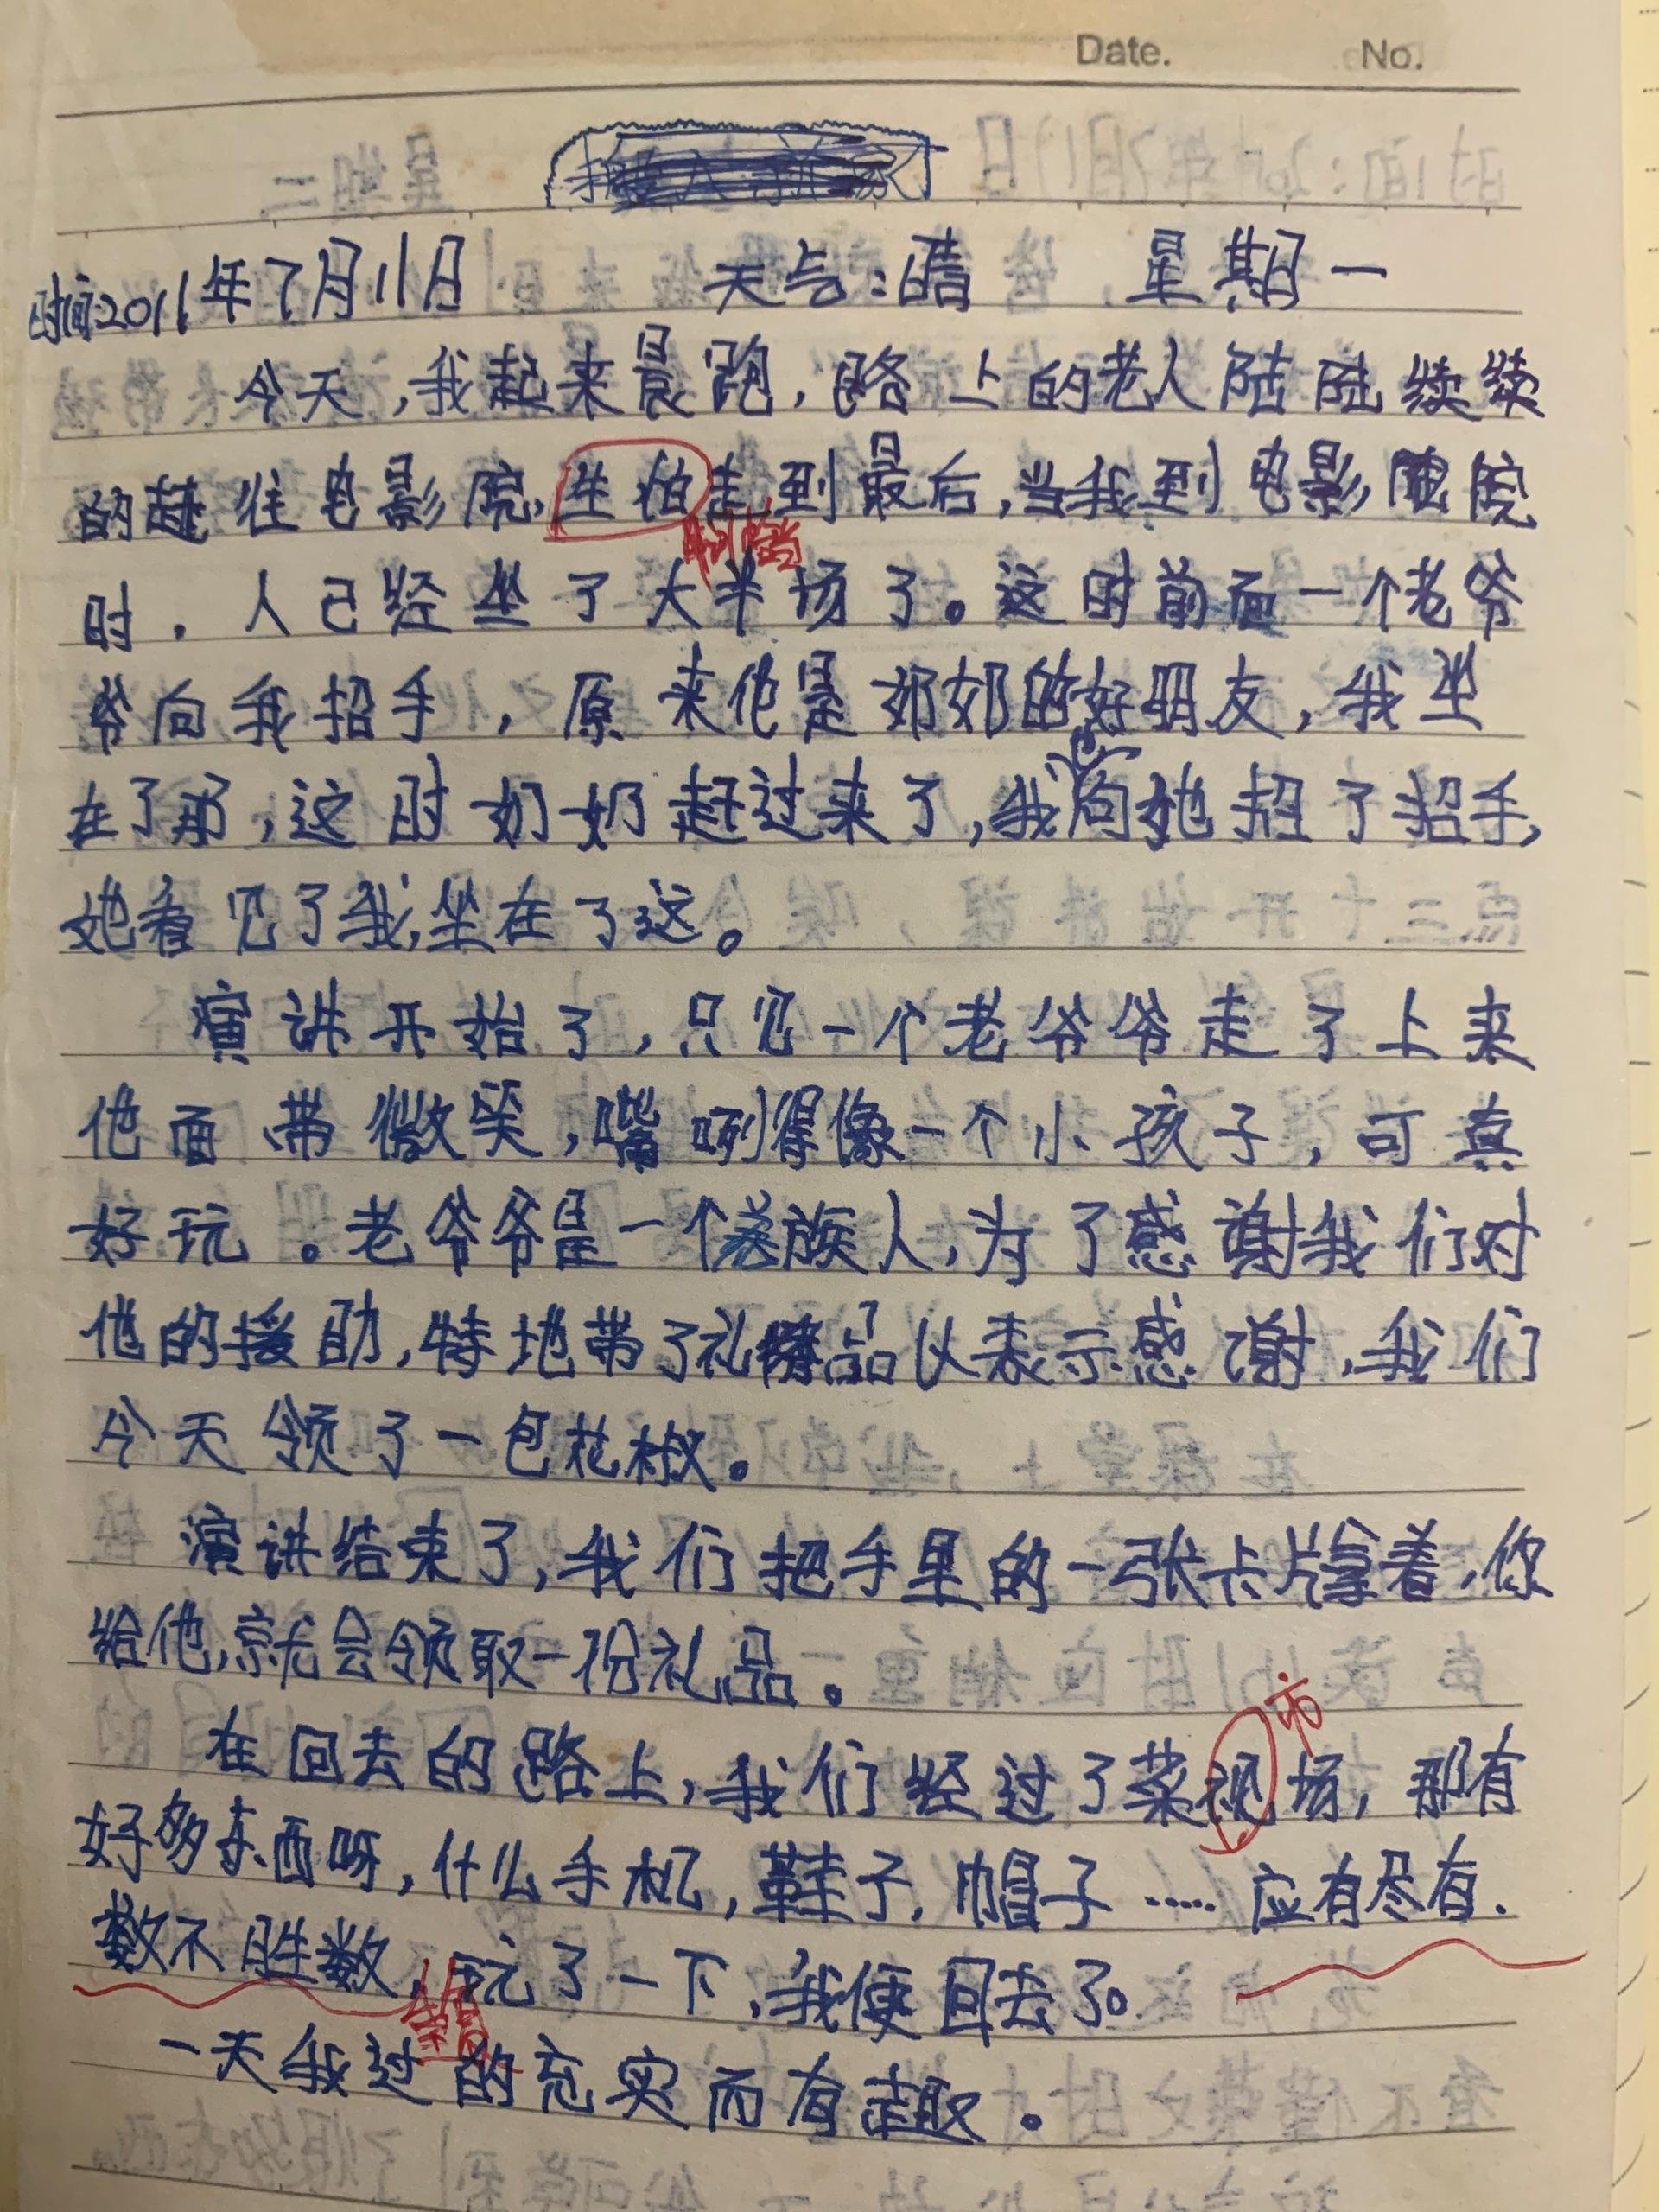 Date. No.
时间:2011年7月11日 天气:晴 星期一
今天,我起来晨跑,路上的老人陆陆续续
的赶往电影院,生怕走到最后,当我到电影院
时,人已经坐了大半场了。这时前面一个老爷
爷向我招手,原来他是奶奶的好朋友,我坐
在了那,这时奶奶赶过来了,我向她招了招手,
她看见了我,坐在了这。
演讲开始了,只见一个老爷爷走了上来
他面带微笑,嘴咧得像一个小孩子,可真
好玩。老爷爷是一个族人,为了感谢我们对
他的援助,特地带了礼品以表示感谢,我们
今天领了一包花椒。
演讲结束了,我们把手里的一张卡片拿着,你
给他,就会领取一份礼品。
市
在回去的路上,我们经过了菜视场,那有
好多东西呀,什么手机,鞋子,帽子……应有尽有.
数不胜数,玩了一下,我便回去了。
一天我过的充实而有趣。